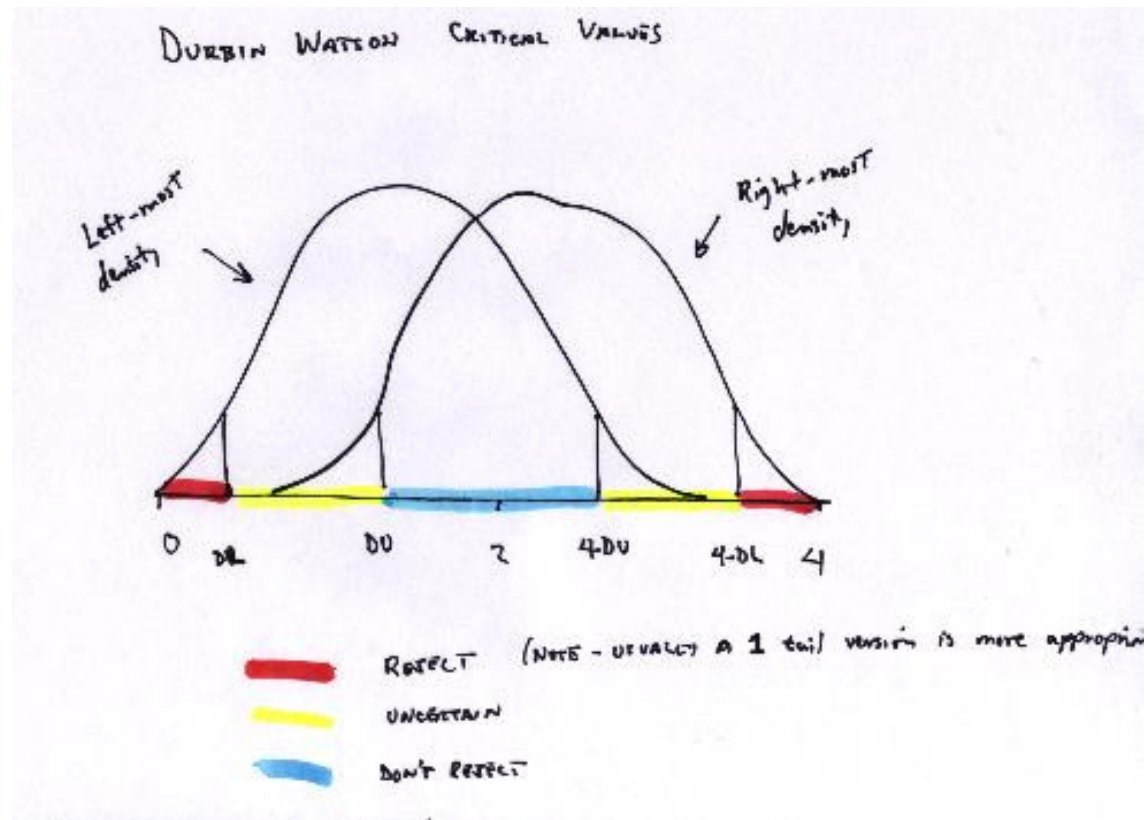 DURBIN WATSON CRITICAL VALUES
Left-most
density
Right-most
density
0 DL DU 2 4-DU 4-DL 4
REJECT (NOTE - USUALLY A 1 tail version is more appropria
UNCERTAIN
DON'T REJECT